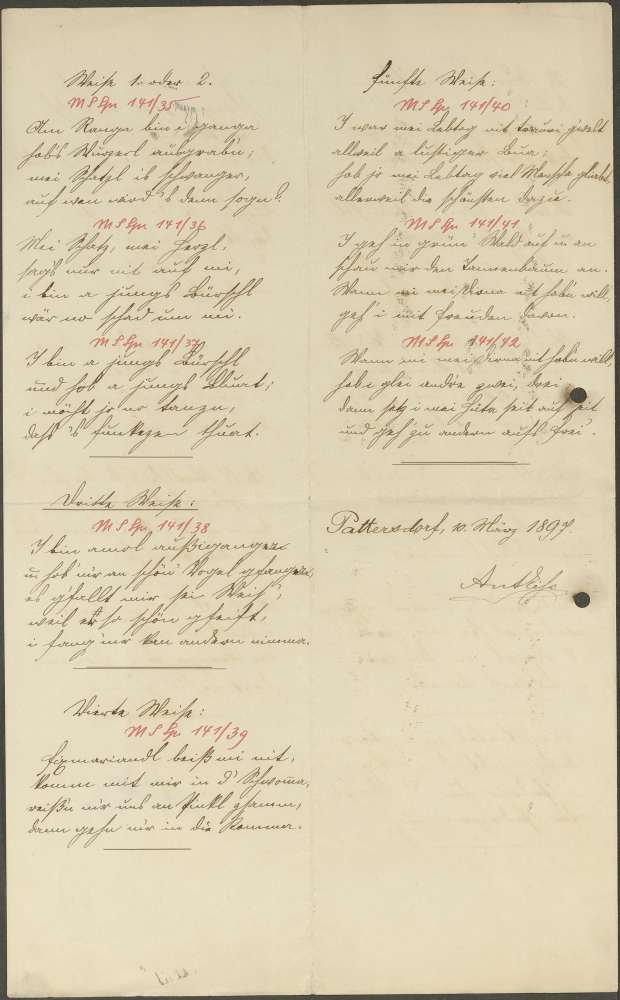 Weise 1. oder 2.
M S Gn 141/35
Am Range bin i ganga
hob's Wurzerl ausgrabn;
mei Schatzl is schwanger,
auf wen wird's denn sogn?
M S Gn 141/36
Mei Schatz, mei Herzl,
sag's nur nit auf mi,
i bin a jungs Bürschl
wär no schad um mi.
M S Gn 141/37
I bin a jungs Bürschl
und hob a jungs Bluat;
i möcht jo no tanzn,
daß 's funkezen thuat.
Dritte Weise:
M S Gn 141/38
I bin amol außiganga
u. hob' mir an schön' Vogel gfangen,
es g'fallt mir sei Weis',
weil er so schön pfeift,
i fang' mir kan andern nimma.
Vierte Weise:
M S Gn 141/39
beiß mi nit,
komm mit mir in d' Schwomma,
reiß'n mir uns an Pinkl zsamm,
dann gehn mir in die Komma.
Fünfte Weise:
M S Gn 141/40
I war mei Lebtag nit trauri gwest
allweil a lustiger Bua;
hob jo mei Lebtag viel Menscha ghabt
allerweil die schönsten dazue.
M S Gn 141/41
I geh' in grün' Wald auf u. an
schau mir den Tannenbaum an.
Wann mi mei Dirna nit hab'n will,
geh' i mit Freuden davon.
M S Gn 141/42
Wann mi mei Dirna nit hab'n will,
hab i glei andre zwei, drei
dann setz i mei Huta seit auf seit
und geh' zu andern aufs Frei'.
Pattersdorf, 10. März 1897.